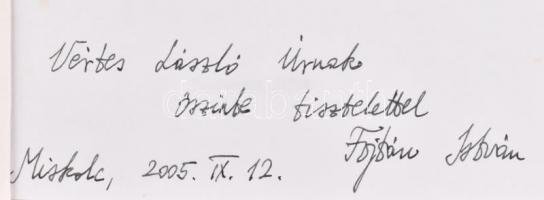 Vértes László Úrnak
őszinte tisztelettel
Fojtán István
Miskolc, 2005. IX. 12.